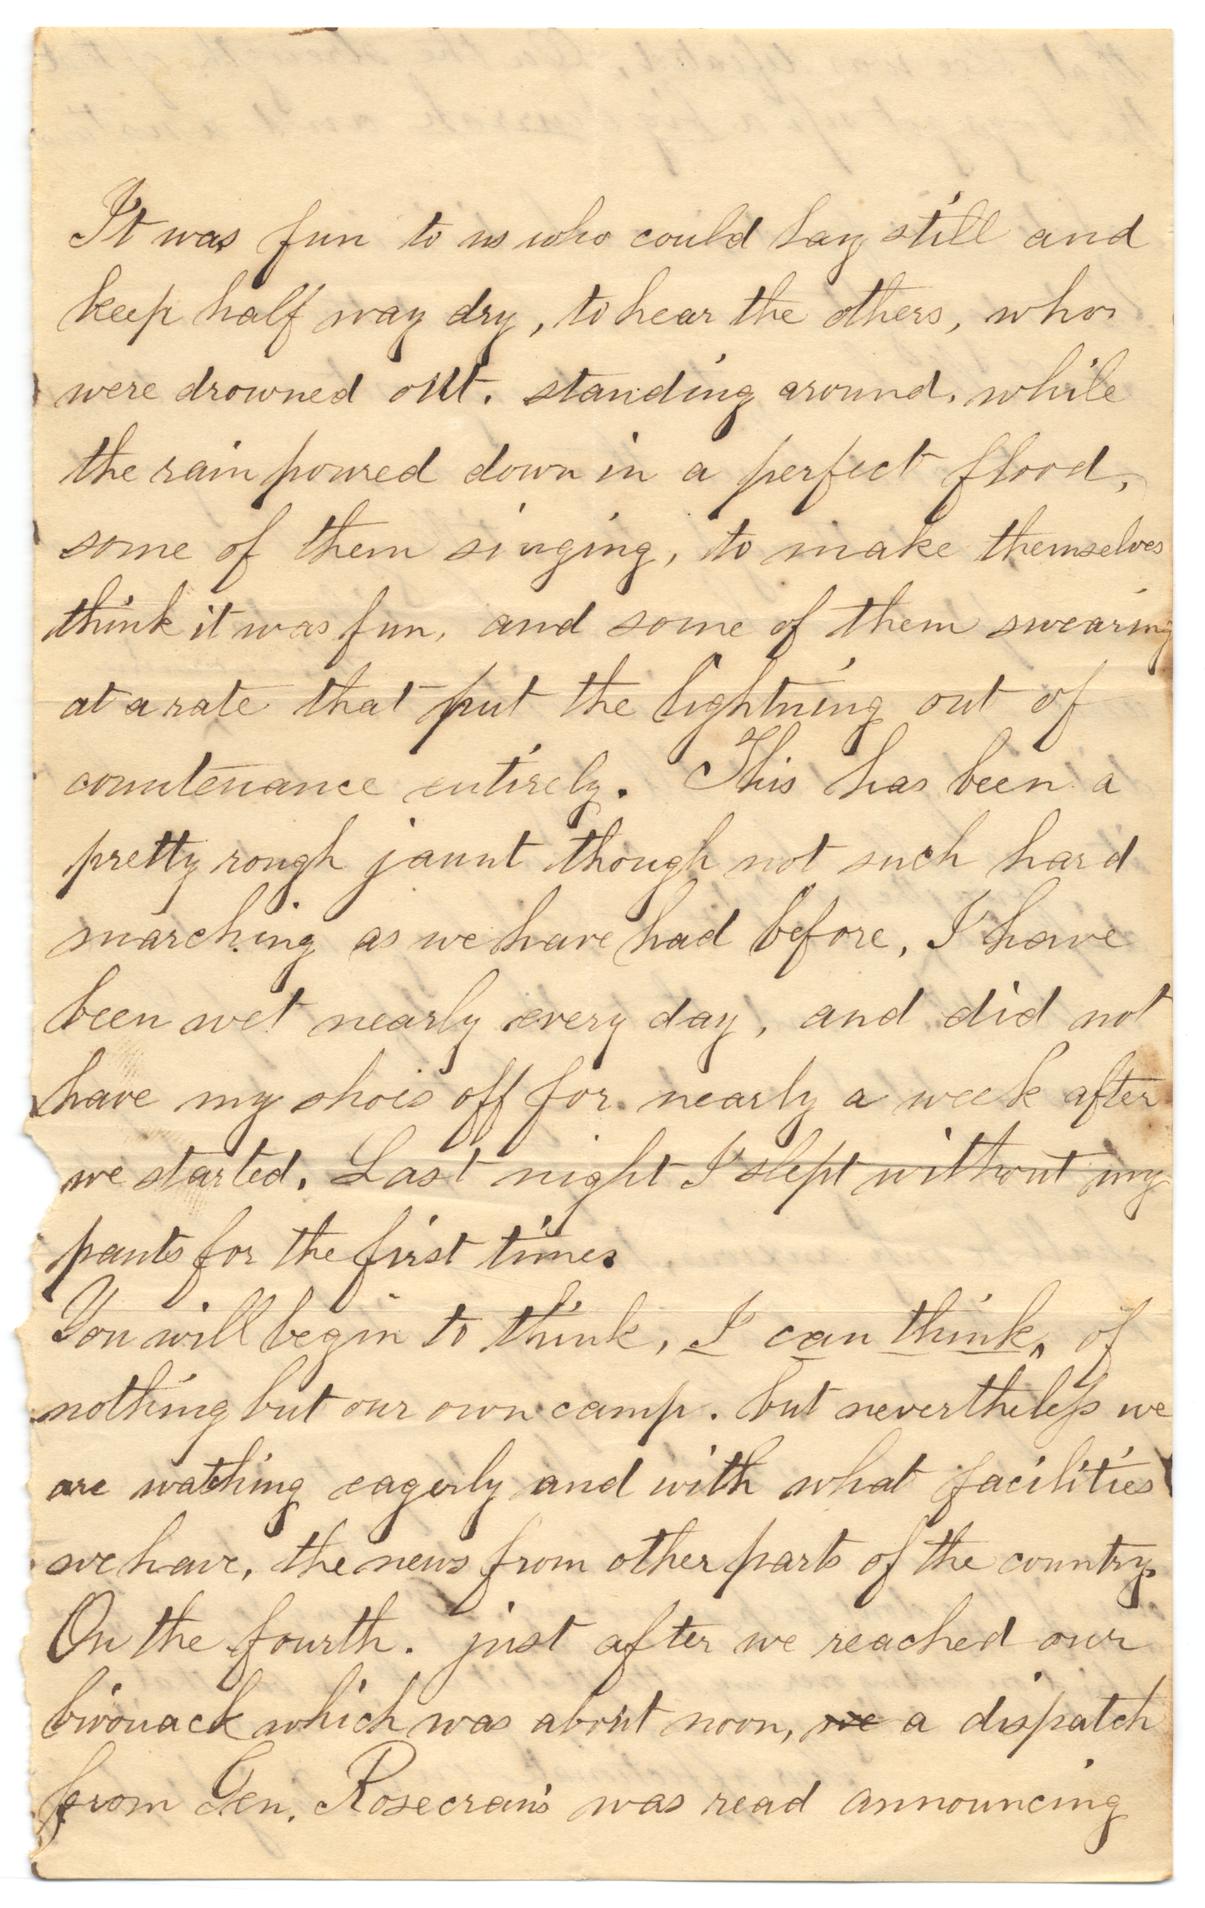 It was fun to us who could lay still and
keep half way dry, to hear the others, who
were drowned out. standing around, while
the rain poured down in a perfect flood,
some of them singing, to make themselves
think it was fun, and some of them swearing
at a rate that put the lightning out of
countenance entirely. This has been a
pretty rough jaunt though not such hard
marching as we have had before, I have
been wet nearly every day, and did not
have my shoes off for nearly a week after
we started. Last night I slept without my
pants for the first time.
You will begin to think, I can think, of
nothing but our own camp. but nevertheless we
are watching eagerly and with what facilities
we have, the news from other parts of the country.
On the fourth. just after we reached our
bivouack which was about noon, we a dispatch
from Gen. Rosecrans was read announcing